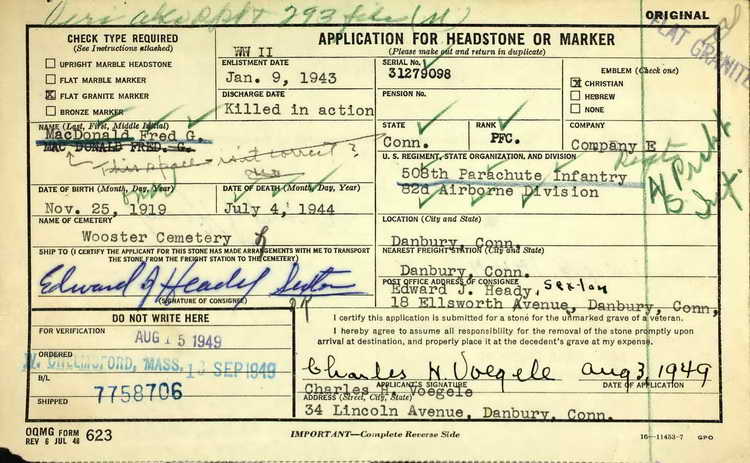 Veri 293 file (N)
ORIGINAL
FLAT GRANITE
CHECK TYPE REQUIRED
(See Instructions attached)
UPRIGHT MARBLE HEADSTONE
FLAT MARBLE MARKER
X FLAT GRANITE MARKER
BRONZE MARKER
WW II
APPLICATION FOR HEADSTONE OR MARKER
(Please make out and return in duplicate)
ENLISTMENT DATE
Jan. 9, 1943
DISCHARGE DATE
Killed in action
SERIAL No.
31279098
PENSION No.
EMBLEM (Check one)
X CHRISTIAN
HEBREW
NONE
NAME (Last, First, Middle Initial)
MacDonald Fred G.
MAC DONALD FRED. G.
this correct ?
STATE
Conn.
RANK
PFC.
COMPANY
Company E
U. S. REGIMENT, STATE ORGANIZATION, AND DIVISION
508th Parachute Infantry
82d Airborne Division
Prcht
Inf.
DATE OF BIRTH (Month, Day, Year)
Nov. 25, 1919
DATE OF DEATH (Month, Day, Year)
July 4, 1944
NAME OF CEMETERY
Wooster Cemetery
LOCATION (City and State)
Danbury, Conn.
SHIP TO (I CERTIFY THE APPLICANT FOR THIS STONE HAS MADE ARRANGEMENTS WITH ME TO TRANSPORT
THE STONE FROM THE FREIGHT STATION TO THE CEMETERY)
Edward J Heady Sexton
(SIGNATURE OF CONSIGNEE)
NEAREST FREIGHT STATION (City and State)
Danbury, Conn.
POST OFFICE ADDRESS OF CONSIGNEE
Edward J. Heady, Sexton
18 Ellsworth Avenue, Danbury, Conn,
DO NOT WRITE HERE
FOR VERIFICATION
AUG 15 1949
ORDERED
N. CHELMSFORD, MASS. 13 SEP 1949
B/L
7758706
SHIPPED
I certify this application is submitted for a stone for the unmarked grave of a veteran.
I hereby agree to assume all responsibility for the removal of the stone promptly upon
arrival at destination, and properly place it at the decedent's grave at my expense.
Charles H. Voegele Aug 3, 1949
APPLICANT'S SIGNATURE DATE OF APPLICATION
Charles H. Voegele
ADDRESS (Street, City, State)
34 Lincoln Avenue, Danbury, Conn.
OQMG FORM 623
REV 6 JUL 48
IMPORTANT—Complete Reverse Side
16—11453-7 GPO